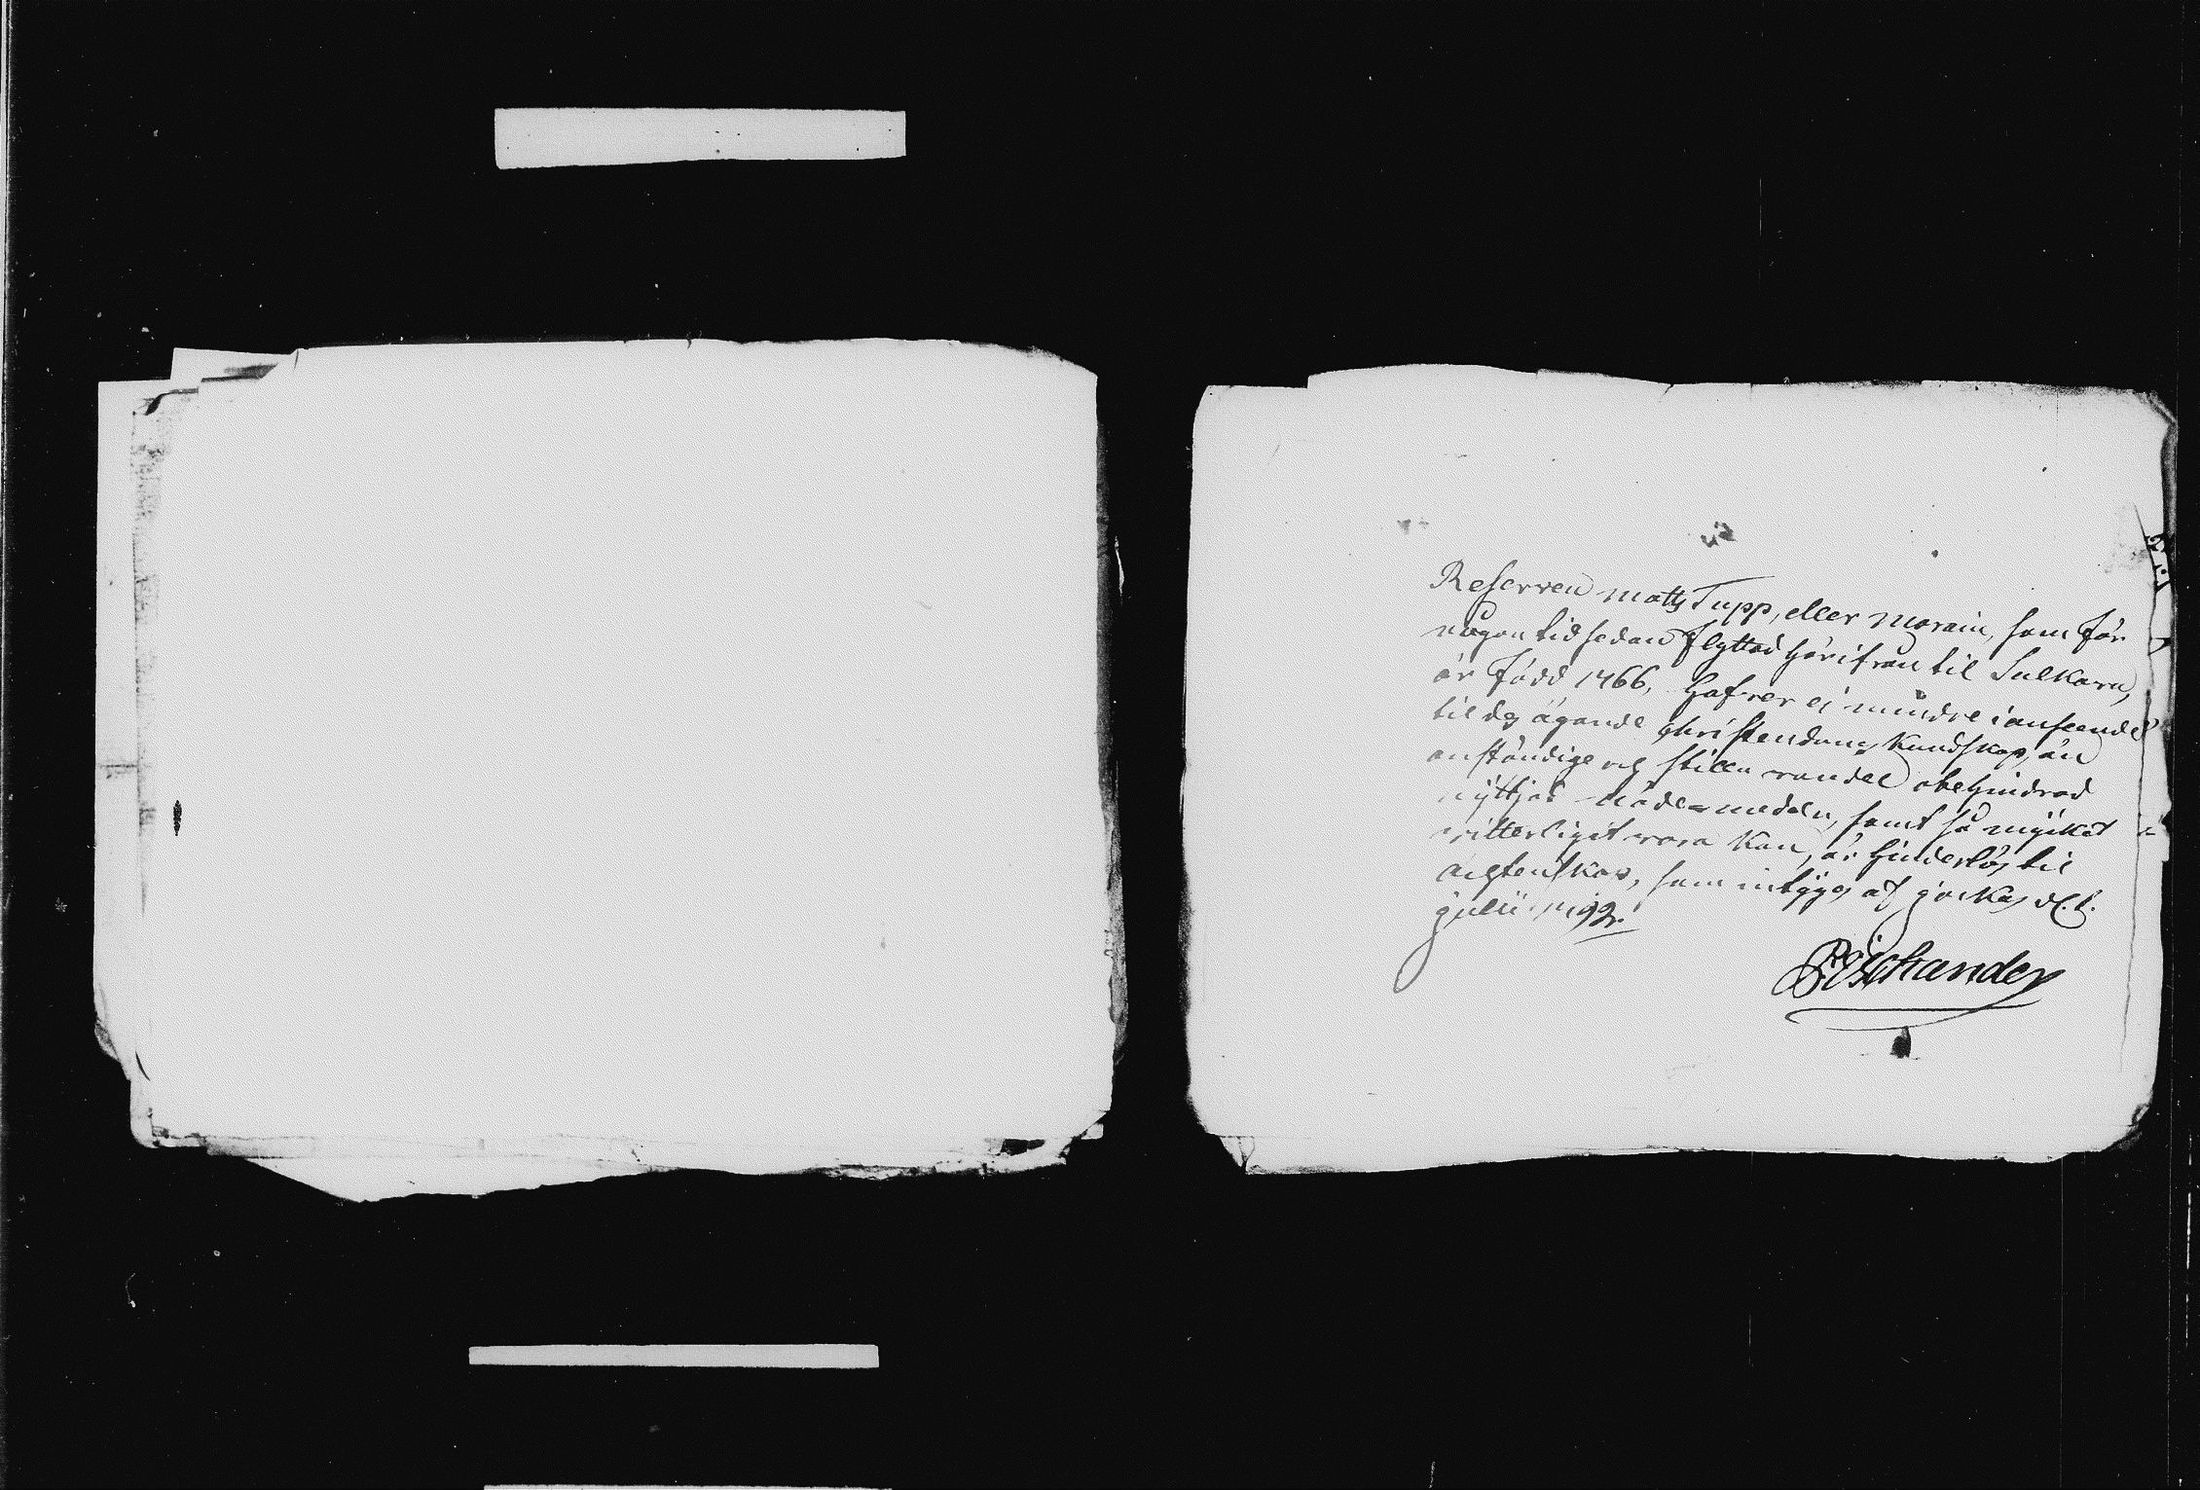 Reserven Matts Tupp, eller Morain, som för
någon tid sedan flyttad härifrån til Sulkava,
är född 1766, hafver ej mindre i anseende
til des ägande Christendoms Kundskap, än
anständige och stilla vandel obehindrad
nyttjat nådemedlen, samt så myiket
vitterligit vara kan, är hinderlös til
ächtenskap, som intygas af Jockas d. 1.
Julii 1792.